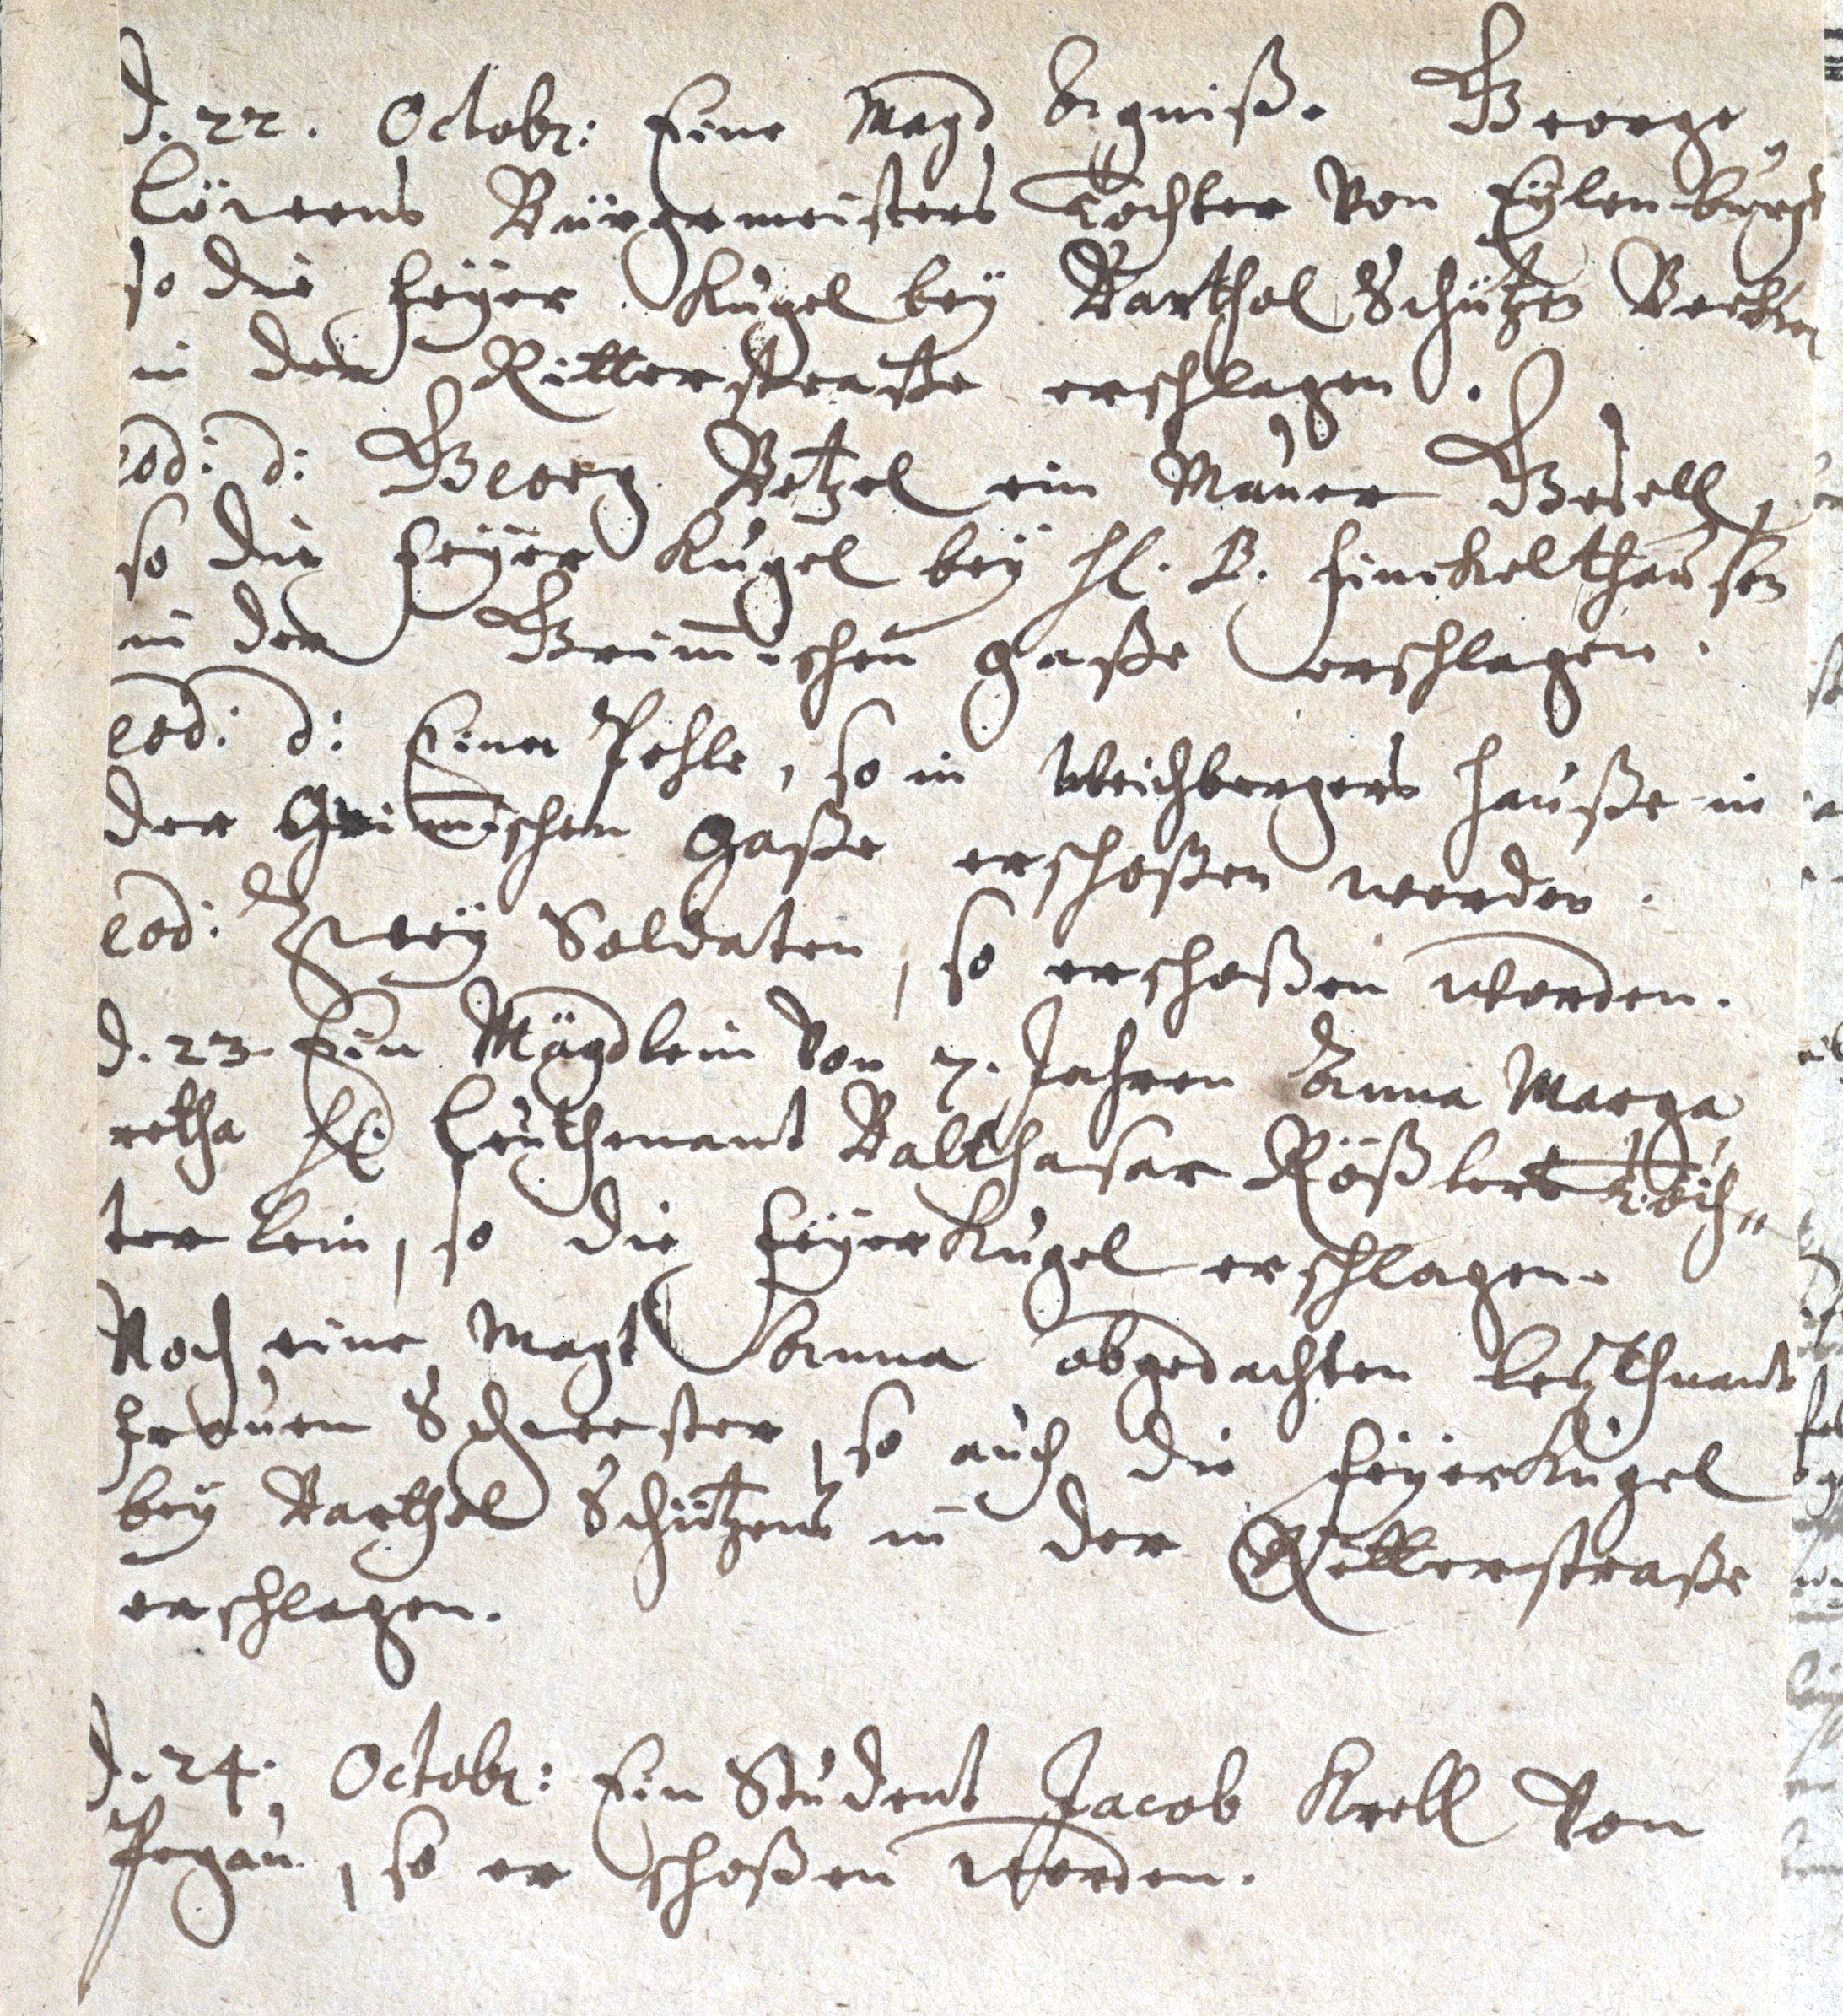 d. 22. Octobr: Eine Magd Agniß. George
Löwens Bürgermeisters Tochter von Eÿlenburgk
so die feÿer Kugel beÿ Barthol Schützen Becken
in der Ritterstraße erschlagen.
eod: d: Georg Petzel ein Maurer Gesell,
so die feÿer Kugel beÿ Hl. B. Finckelthausen
in der Grim̄ischen gaße erschlagen.
eod: d: Einer Pohle, so in Weichbergers Hauße in
der Grim̄ischen gaße erschoßen worden.
eod: Zweÿ Soldaten, so erschoßen worden.
d. 23. Ein Mägdlein von 7. Jahren Anna Marga
retha Hl. Leuthenant Balthasar Rößlers Töch„
terlein, so die feÿerkugel erschlagen.
Noch eine Magt Anna obgedachten Leuthnants
Frauen Schwester, so auch die feÿerkugel
beÿ Barthol Schützens in der Ritterstraße
erschlagen.
d. 24. Octobr: Ein Student Jacob Krell von
Pegau, so erschoßen worden.